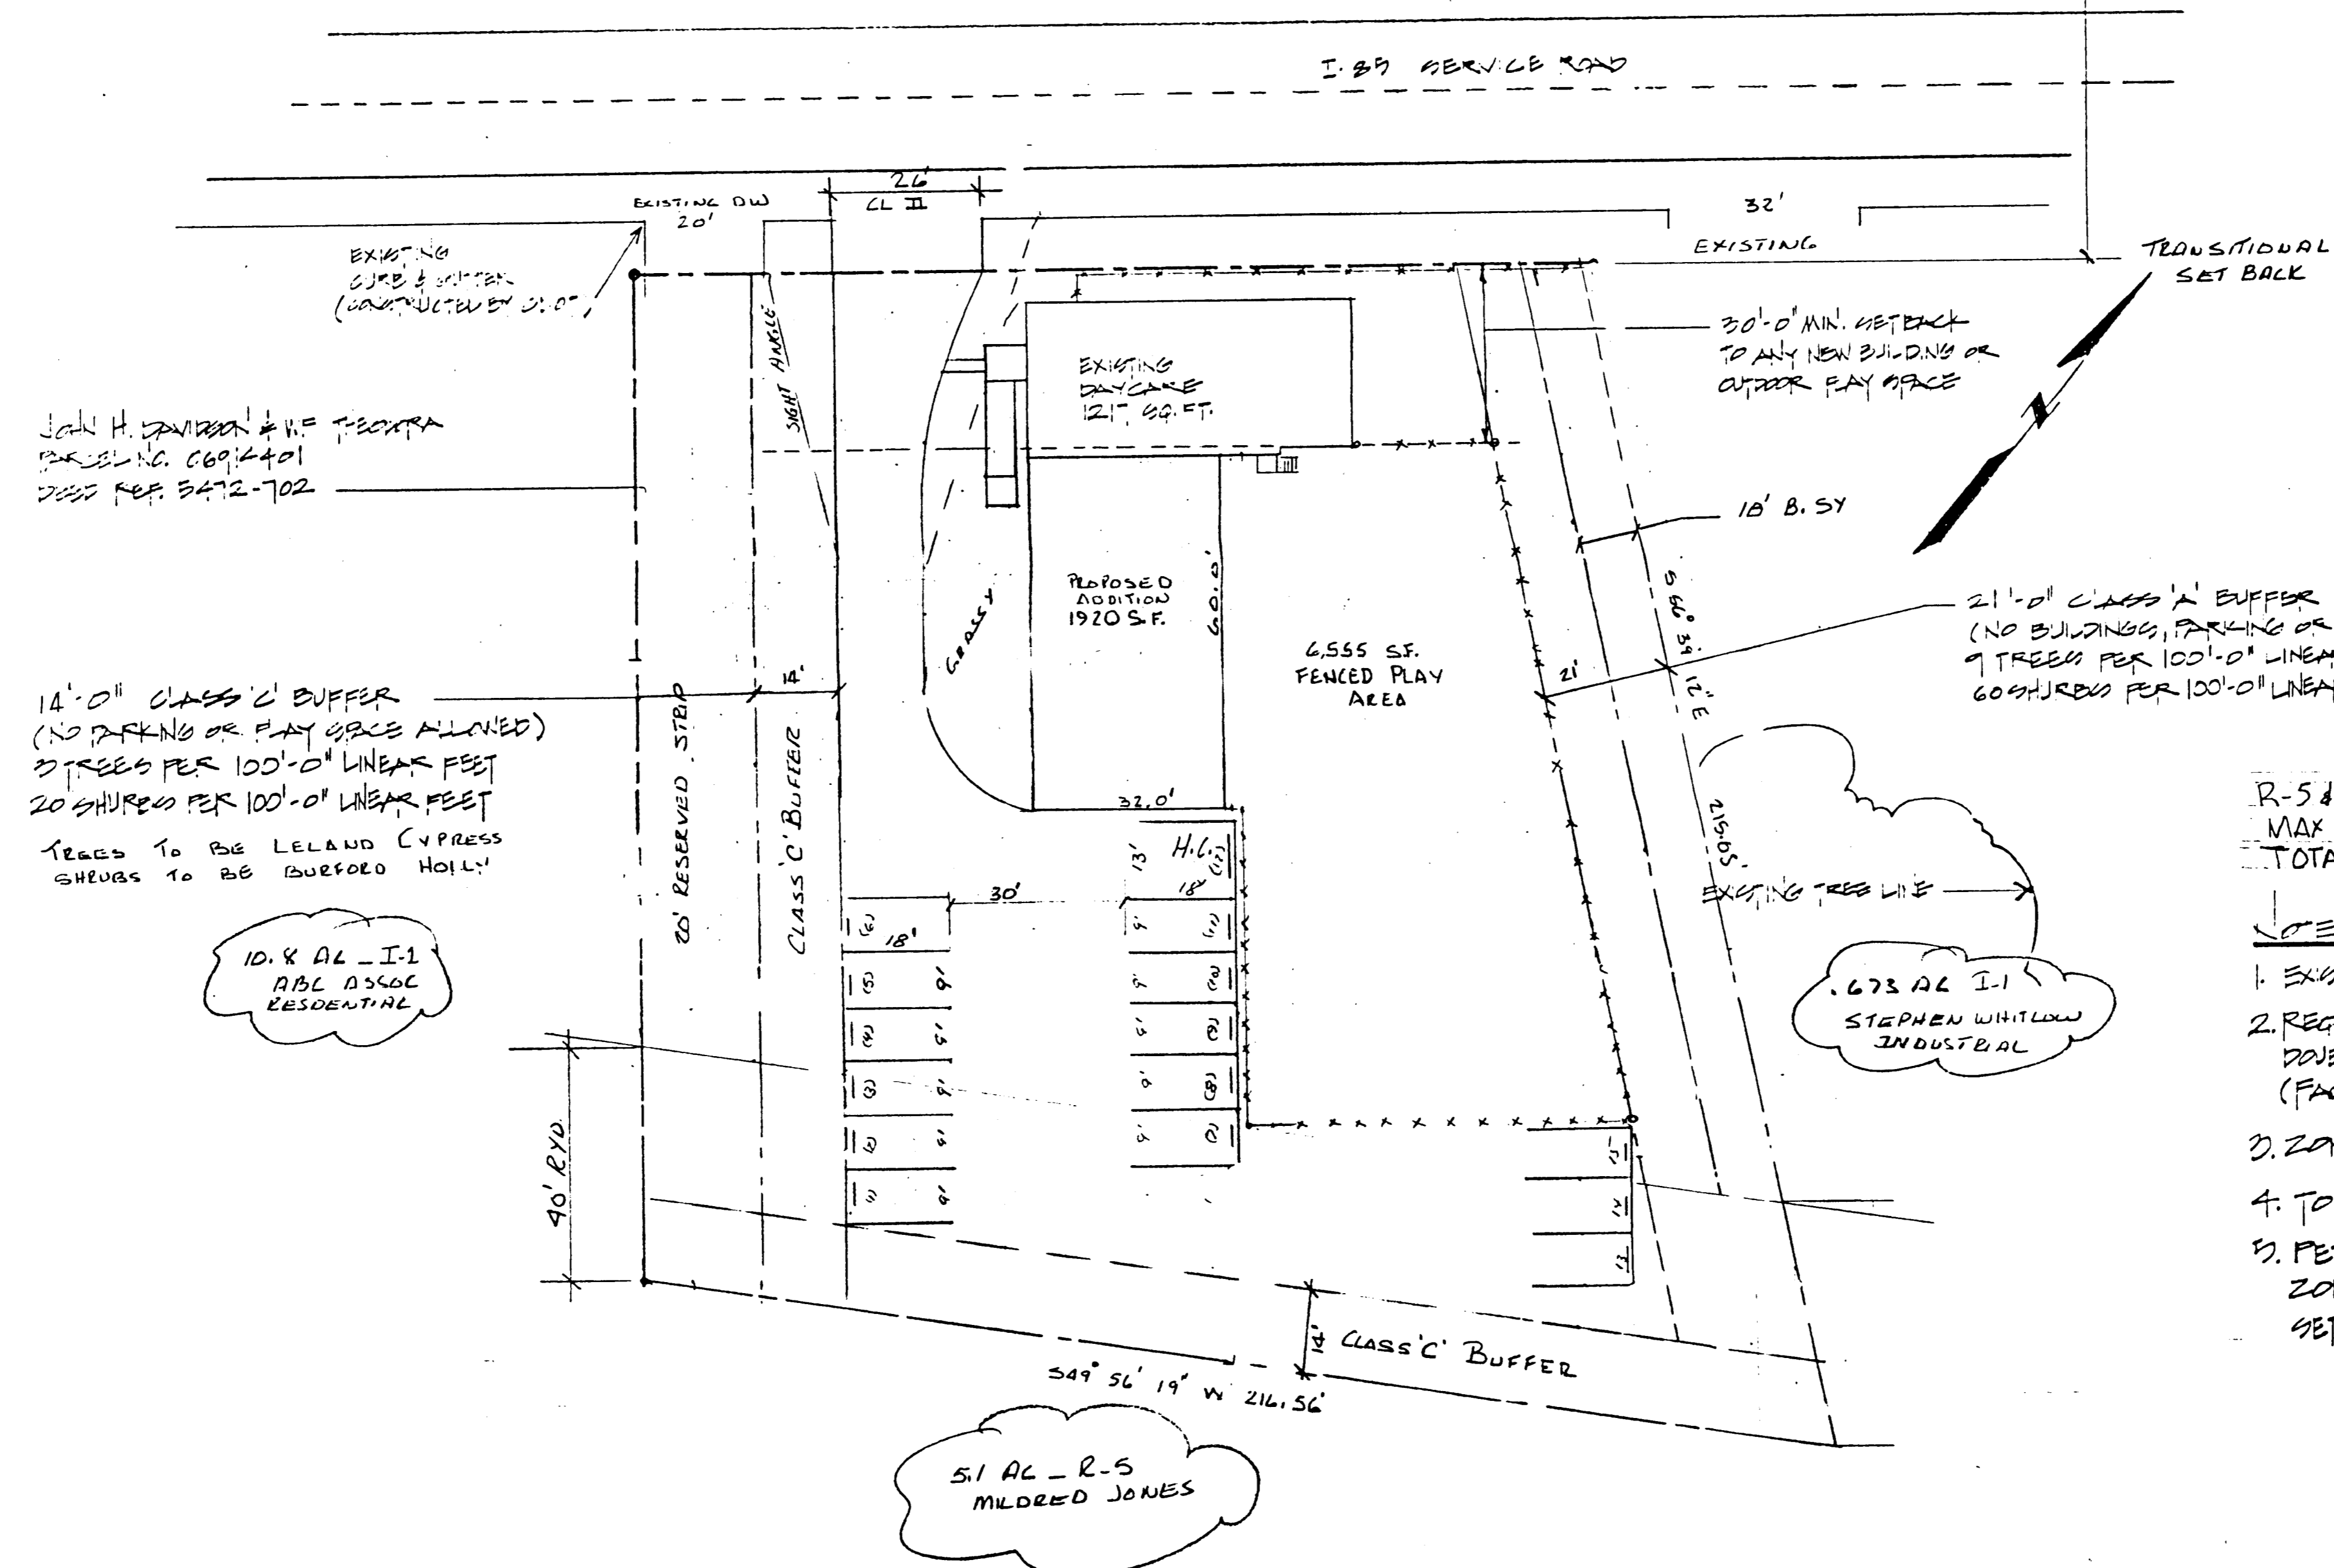 I-85 SERVICE ROAD
26'
CL II
EXISTING DW
20'
32'
EXISTING
TRANSITIONAL
SET BACK
EXISTING
CURB & GUTTER
(CONSTRUCTED BY
SIGHT ANGLE
EXISTING
DAYCARE
SQ. FT.
30'-0" MIN. SETBACK
TO ANY NEW BUILDING OR
OUTDOOR PLAY SPACE
JOHN H. DAVIDSON & WF
PARCEL NO.
DEED REF. 5472-702
18' B. SY
PROPOSED
ADDITION
1920 S.F.
60.0'
GRASSY
6,555 SF.
FENCED PLAY
AREA
S 56° 39' 12" E
21'
21'-0" CLASS 'A' BUFFER
(NO BUILDINGS, PARKING OR
9 TREES PER 100'-0" LINEA
60 SHURBS PER 100'-0" LINEA
14'-0" CLASS 'C' BUFFER
(NO PARKING OR PLAY SPACE ALLOWED)
3 TREES PER 100'-0" LINEAR FEET
20 SHURBS PER 100'-0" LINEAR FEET
TREES TO BE LELAND CYPRESS
SHRUBS TO BE BURFORD HOLLY
14'
20' RESERVED STRIP
CLASS 'C' BUFFER
32.0'
215.05'
R-5 &
MAX
TOTA
13'
H.C.
(12)
30'
18'
EXISTING TREE LINE
(6)
18'
9'
(11)
10.8 AC _ I-1
ABC ASSOC
RESDENTIAL
(5)
9'
9'
(10)
.673 AC I-1
STEPHEN WHITLOW
INDUSTRIAL
(4)
9'
9'
(9)
(3)
9'
9'
(8)
(2)
9'
9'
(7)
(1)
9'
15
14
13
40' RYD.
1. EXIS
2. REG
(FA
3. ZO
4. TO
5. PE
ZO
SET
14'
CLASS 'C' BUFFER
S49° 56' 19" W 216.56'
5.1 AC _ R-5
MILDRED JONES